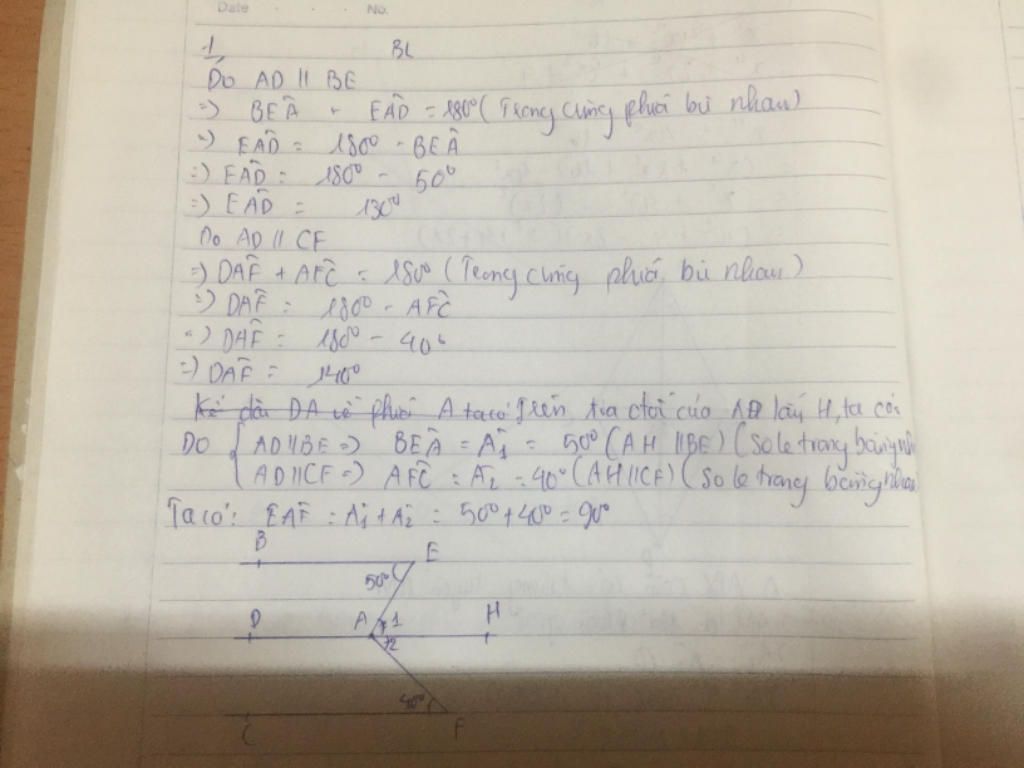 Date . . . No.
1 BL
Do AD // BE
=> BEÂ + EÂD = 180° (Trong cùng phía bù nhau)
=> EÂD = 180° - BEÂ
=> EÂD = 180° - 50°
=> EÂD = 130°
Do AD // CF
=> DAF̂ + AFĈ = 180° (Trong cùng phía bù nhau)
=> DAF̂ = 180° - AFĈ
=> DAF̂ = 180° - 40°
=> DAF̂ = 140°
Kẻ dài DA về phía A ta có Trên tia đối của AD lấy H, ta có:
DO { AD // BE => BEÂ = Â1 = 50° (AH // BE) (So le trong bằng nhau
AD // CF => AFĈ = Â2 = 40° (AH // CF) (So le trong bằng nhau
Ta có: EÂF = Â1 + Â2 = 50° + 40° = 90°
B E
50°
D A 1 H
2
40°
C F